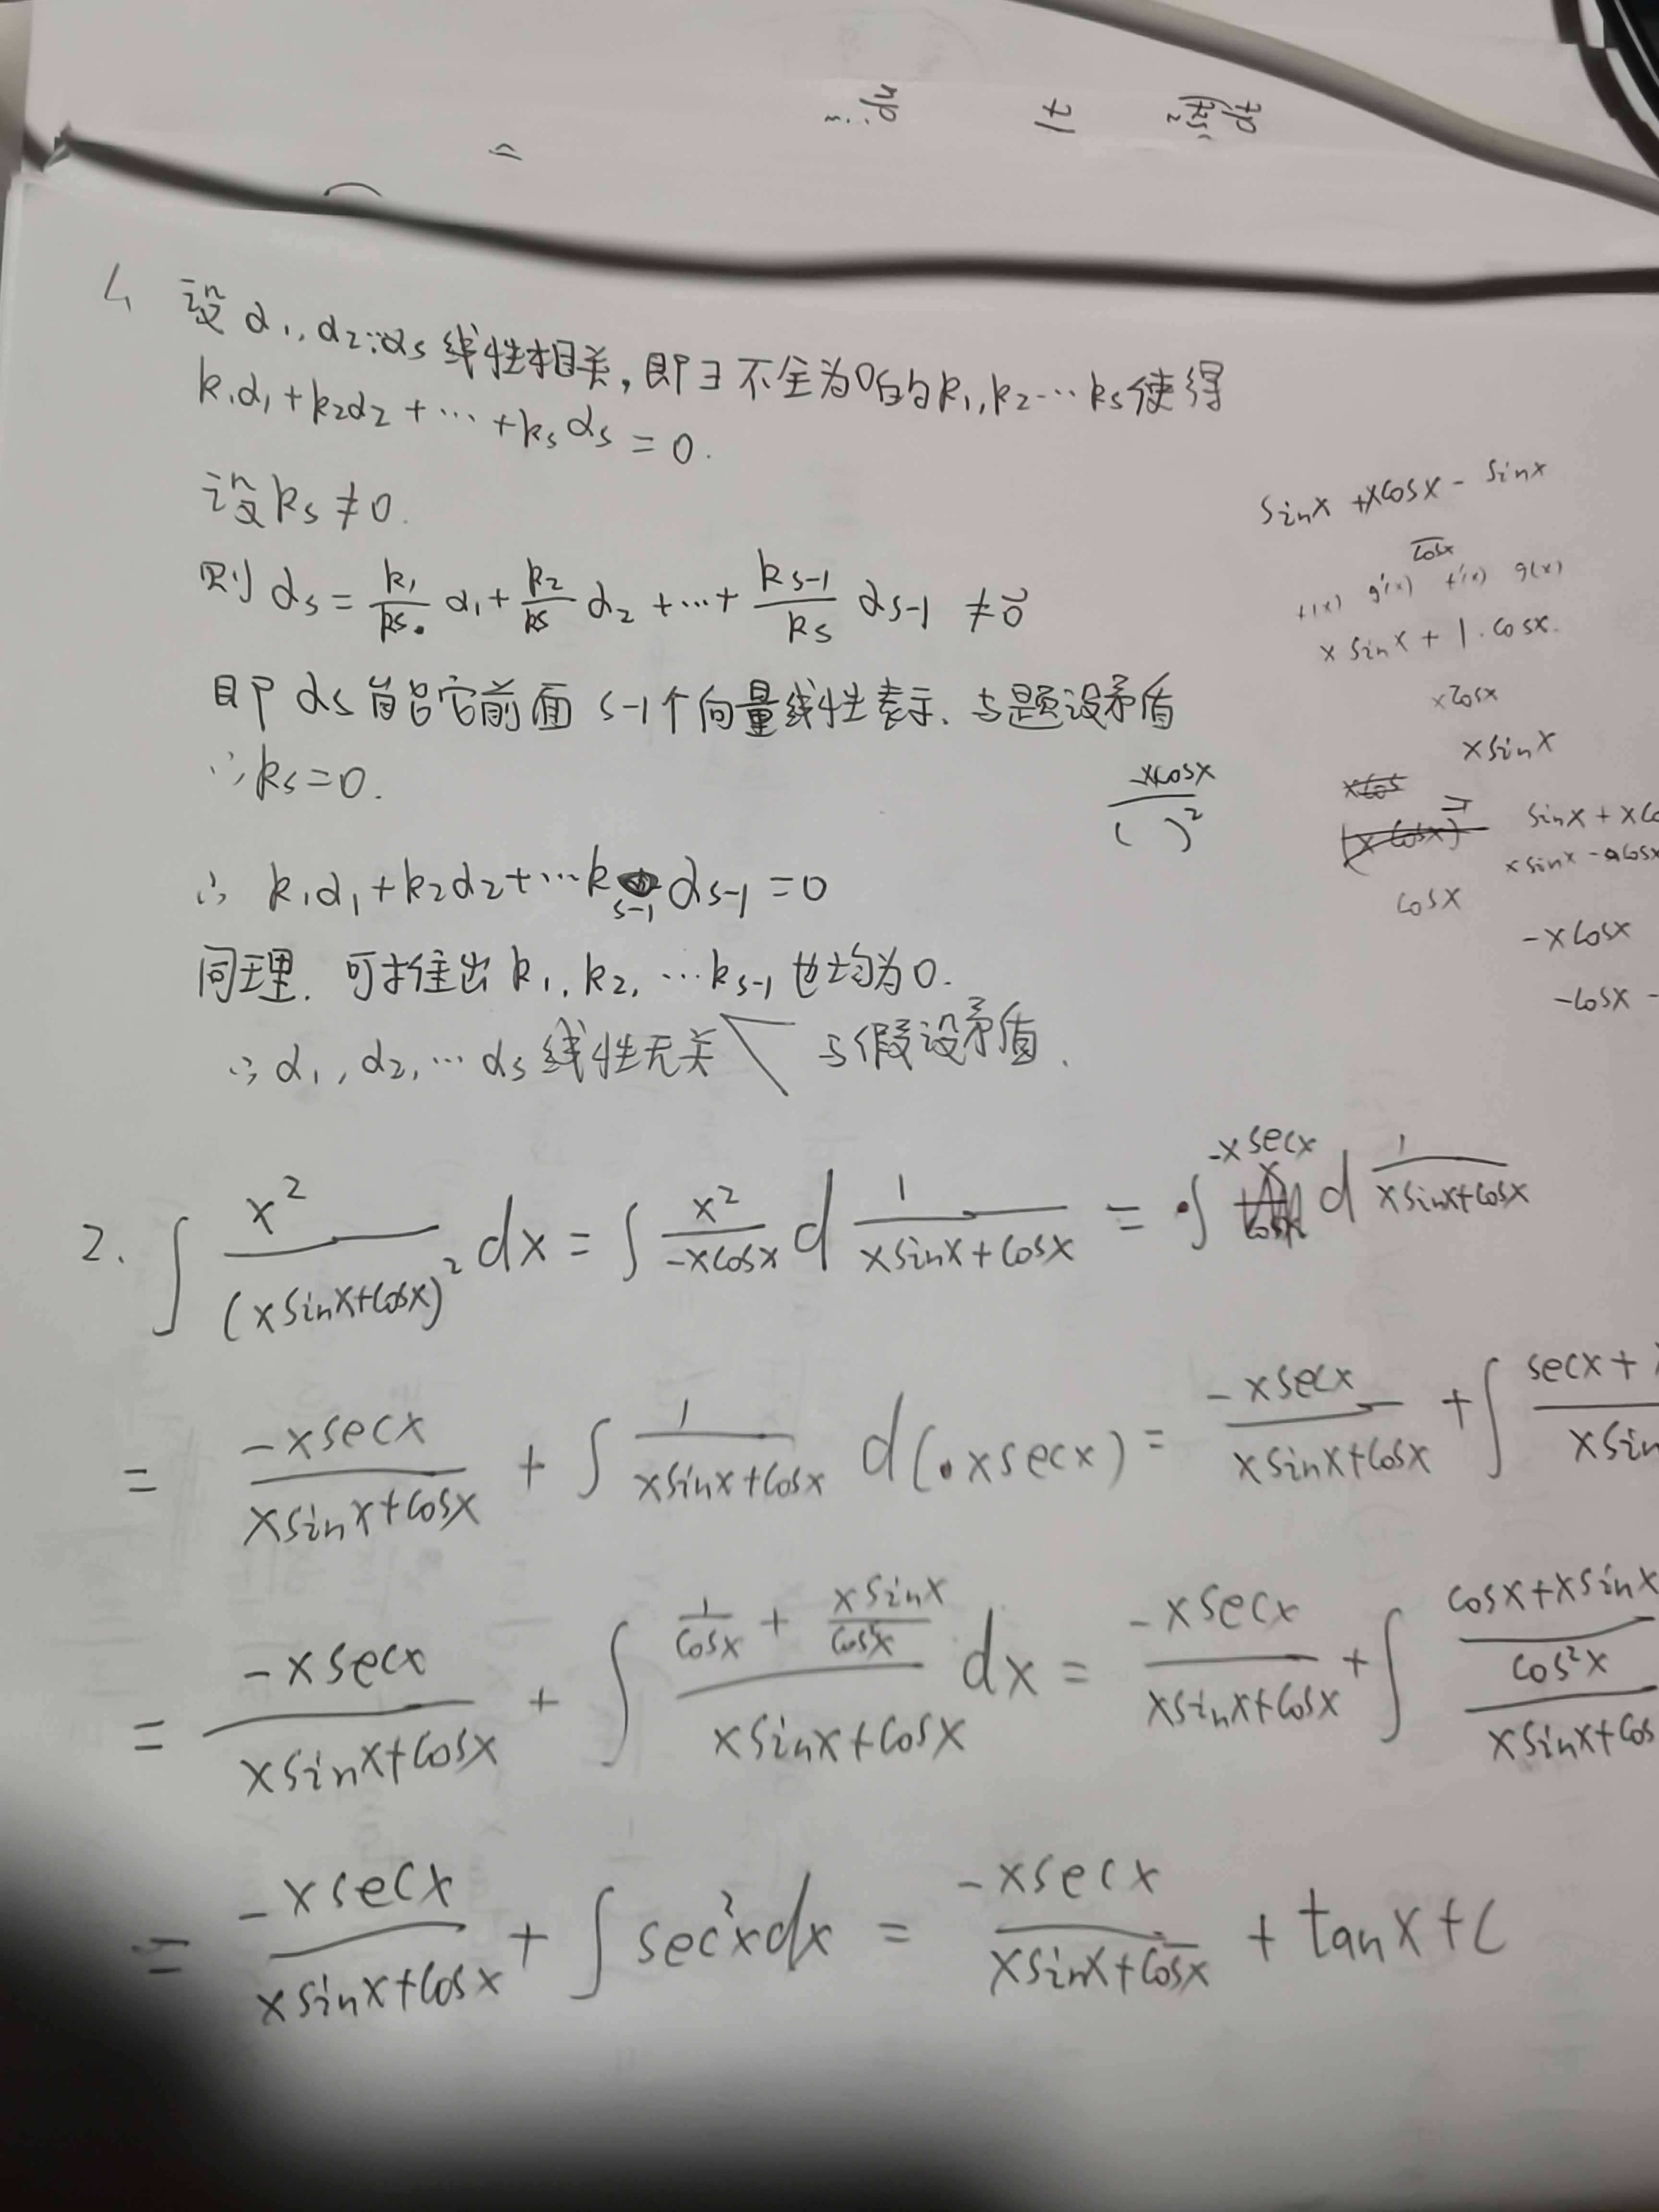 1. 设α₁,α₂…αs线性相关,即∃不全为0的k₁,k₂…ks使得
k₁α₁+k₂α₂+…+ksαs=0.
设ks≠0.
则αs=k₁/ks α₁+k₂/ks α₂+…+ks-1/ks αs-1≠0⃗
即αs能由它前面s-1个向量线性表示、与题设矛盾
∴ks=0.
∴k₁α₁+k₂α₂+…ks-1αs-1=0
同理.可推出k₁,k₂,…ks-1也均为0.
∴α₁,α₂,…αs线性无关 与假设矛盾.
sinx+xcosx-sinx
cosx
f(x) g'(x) f'(x) g(x)
xsinx+1·cosx.
xcosx
xsinx
-xcosx/( )²
sinx+xco
xsinx-
cosx
-xcosx
-cosx-
2. ∫x²/(xsinx+cosx)² dx=∫x²/-xcosx d 1/xsinx+cosx=∫-xsecx d 1/xsinx+cosx
=-xsecx/xsinx+cosx+∫1/xsinx+cosx d(xsecx)=-xsecx/xsinx+cosx+∫secx+/xsin
=-xsecx/xsinx+cosx+∫(1/cosx+xsinx/cos²x)/xsinx+cosx dx=-xsecx/xsinx+cosx+∫(cosx+xsinx/cos²x)/xsinx+cos
=-xsecx/xsinx+cosx+∫sec²xdx=-xsecx/xsinx+cosx+tanx+C